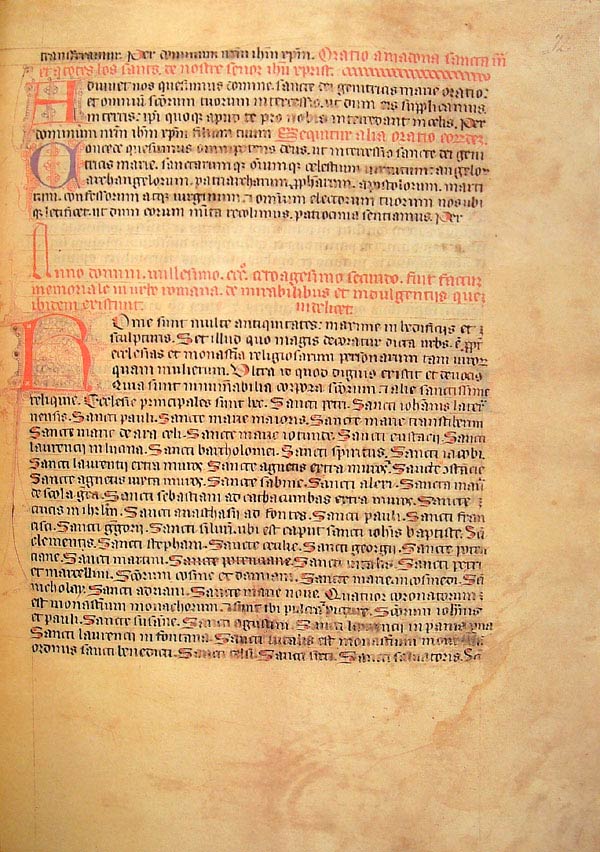 transferamur. Per dominum nrm ihm xpm. Oratio a madona sancta m
et a totes los sants. de nostre senor ihu xprist.
Adiuvet nos quesumus domine. sancte dei genitricis marie oratio:
et omnium scorum tuorum intercessio. ut dum eis supplicamus
in terris: ipi quoq; apud te pro nobis intercedant in celis. Per
dominum nrm ihm xpm filium tuum. Sequitur alia oratio
Concede quesumus omnipotens deus. ut intercessio sancte dei geni
tricis marie. sanctarumq; omniumq; celestium virtutum: angelor
archangelorum. patriarcharum. prophetarum. apostolorum. marti
rum. confessorum atq; virginum. et omnium electorum tuorum nos ubi
q; letificet. ut dum eorum merita recolimus. patrocinia sentiamus. Per
Anno domini. millesimo. ccc. octoagesimo secundo. fuit factum
memoriale in urbe romana. de mirabilibus et indulgentiis que
ibidem existunt. videlicet.
Rome sunt multe antiquitates: maxime in hedificiis et
sculpturis. Set illud quo magis decoratur dicta urbs. e. ppt
ecclesias et monastia religiosarum personarum tam viror
quam mulierum. Ultra id quod digitus existit et devocio
Quia sunt innumabilia corpora scorum. et alie sanctissime
reliquie. Ecclesie principales sunt hec. Sancti petri. Sancti iohanis latera
nensis. Sancti pauli. Sancte marie maioris. Sancte marie transtiberim
Sancte marie de ara celi. Sancte marie rotunde. Sancti eustacii. Sancti
laurencii in lucina. Sancti bartholomei. Sancti spiritus. Sancti iacobi.
Sancti laurentii extra muros. Sancte agnetis extra muros. Sancte
Sancte agnetis iuxta muros. Sancte sabine. Sancti alexi. Sancta mari
de scola gca. Sancti sebastiani ad cathacumbas extra muros. Sancte
crucis in ihrlm. Sancti anasthasii ad fontes. Sancti pauli. Sancti fran
cisci. Sancti ggorii. Sancti silvri. ubi est caput sancti iohis baptiste. Sci
clementis. Sancti stephani. Sancte cecilie. Sancti georgii. Sancte poten
ciane. Sancti martini. Sancte potenciane. Sancti vitalis. Sancti petri
et marcellini. Scorum cosme et damiani. Sancte marie in cosmedi. Sci
nicholay. Sancti adriani. Sancte marie nove. Quatuor coronatorum
est monastium monachorum. et sunt ibi pulcra picture. Scorum iohis
et pauli. Sancte susane. Sancti agustini. Sancti laurencii in panisperna
Sancti laurencii in fontana. Sancti vitalis est monastium
ordinis sancti benedicti. Sancti celsi. Sancti viti. Sancti salvatoris. Sci